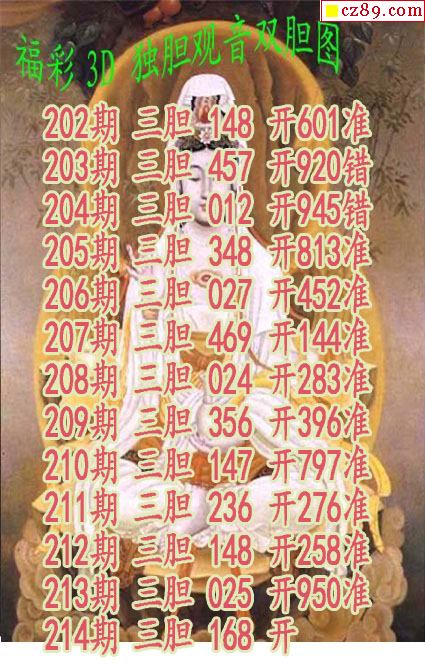 cz89.com
福彩 3D 独胆观音双胆图
202期 三胆 148 开601准
203期 三胆 457 开920错
204期 三胆 012 开945错
205期 三胆 348 开813准
206期 三胆 027 开452准
207期 三胆 469 开144准
208期 三胆 024 开283准
209期 三胆 356 开396准
210期 三胆 147 开797准
211期 三胆 236 开276准
212期 三胆 148 开258准
213期 三胆 025 开950准
214期 三胆 168 开